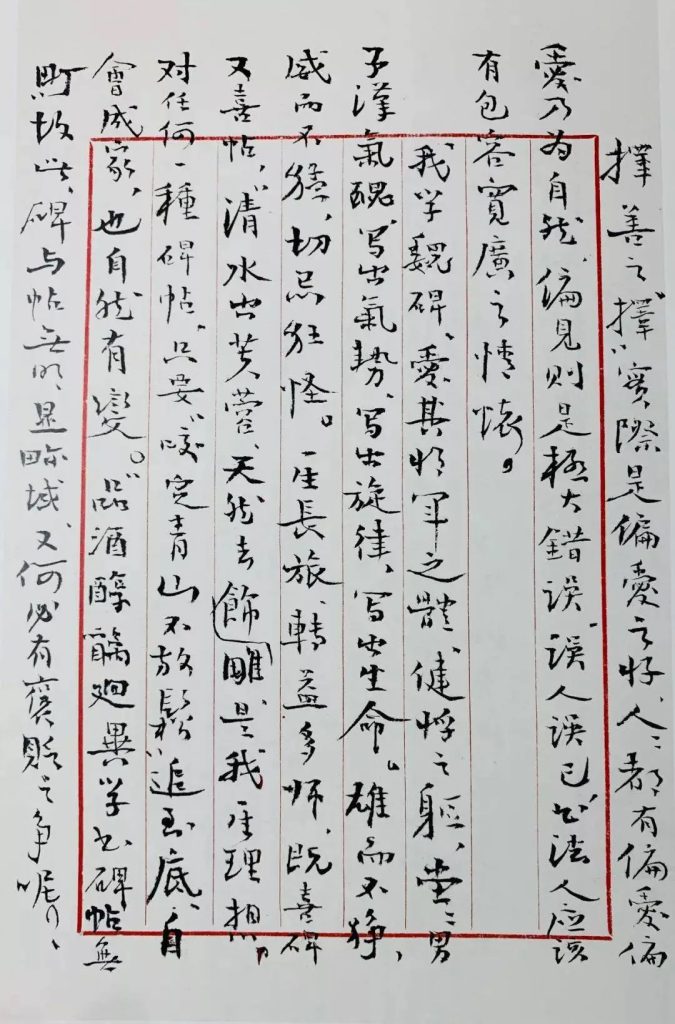 擇善之“擇”實際是偏愛之好、人々都有偏愛偏
愛乃为自然、偏見則是極大錯误、误人误已书法人应该
有包容寬廣之情懷。
我学魏碑、愛其将军之體、健悍之軀、堂々男
子漢氣魄、写出氣势、写出旋律、写出生命。雄而不狰、
威而不猛、切忌狂怪。一生長旅、轉益多师、既喜碑
又喜帖、“清水出芙蓉、天然去飾雕、是我至理想。
对任何一種碑帖、只要“咬定青山不放鬆”追到底、自
會成家、也自然有變。品酒醇醨迥異学书碑帖無
町故此、碑与帖无明显畛域、又何必有褒貶之争呢、